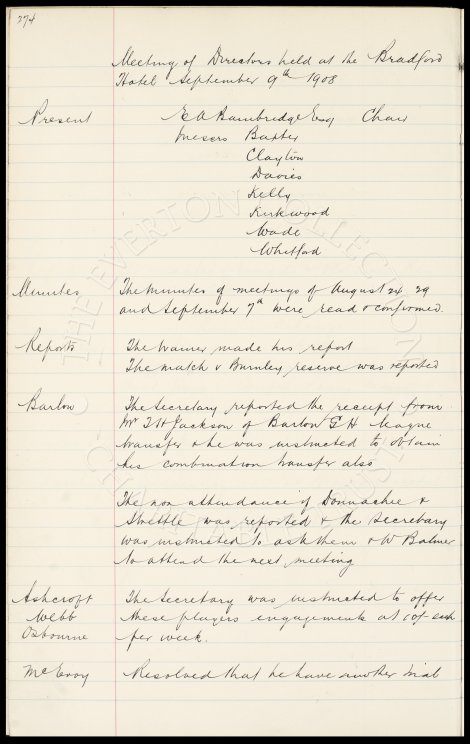 274
Meeting of Directors held at the Bradford
Hotel September 9th 1908
Present E A Bainbridge Esq Chair
Messrs Baxter
Clayton
Davies
Kelly
Kirkwood
Wade
Whitford
Minutes The Minutes of meetings of August 24 29
and September 7th were read & confirmed.
Reports The trainer made his report
The match v Burnley reserve was reported
Barlow The Secretary reported the receipt from
Mr Jackson of Barlow G H League
transfer & he was instructed to obtain
his combination transfer also
The non attendance of Donnachie &
was reported & the Secretary
was instructed to ask them & W Balmer
to attend the next meeting
Ashcroft The Secretary was instructed to offer
Webb these players engagements at 10/- each
Osbourne per week.
McEvoy Resolved that he have another trial
THE EVERTON COLLECTION